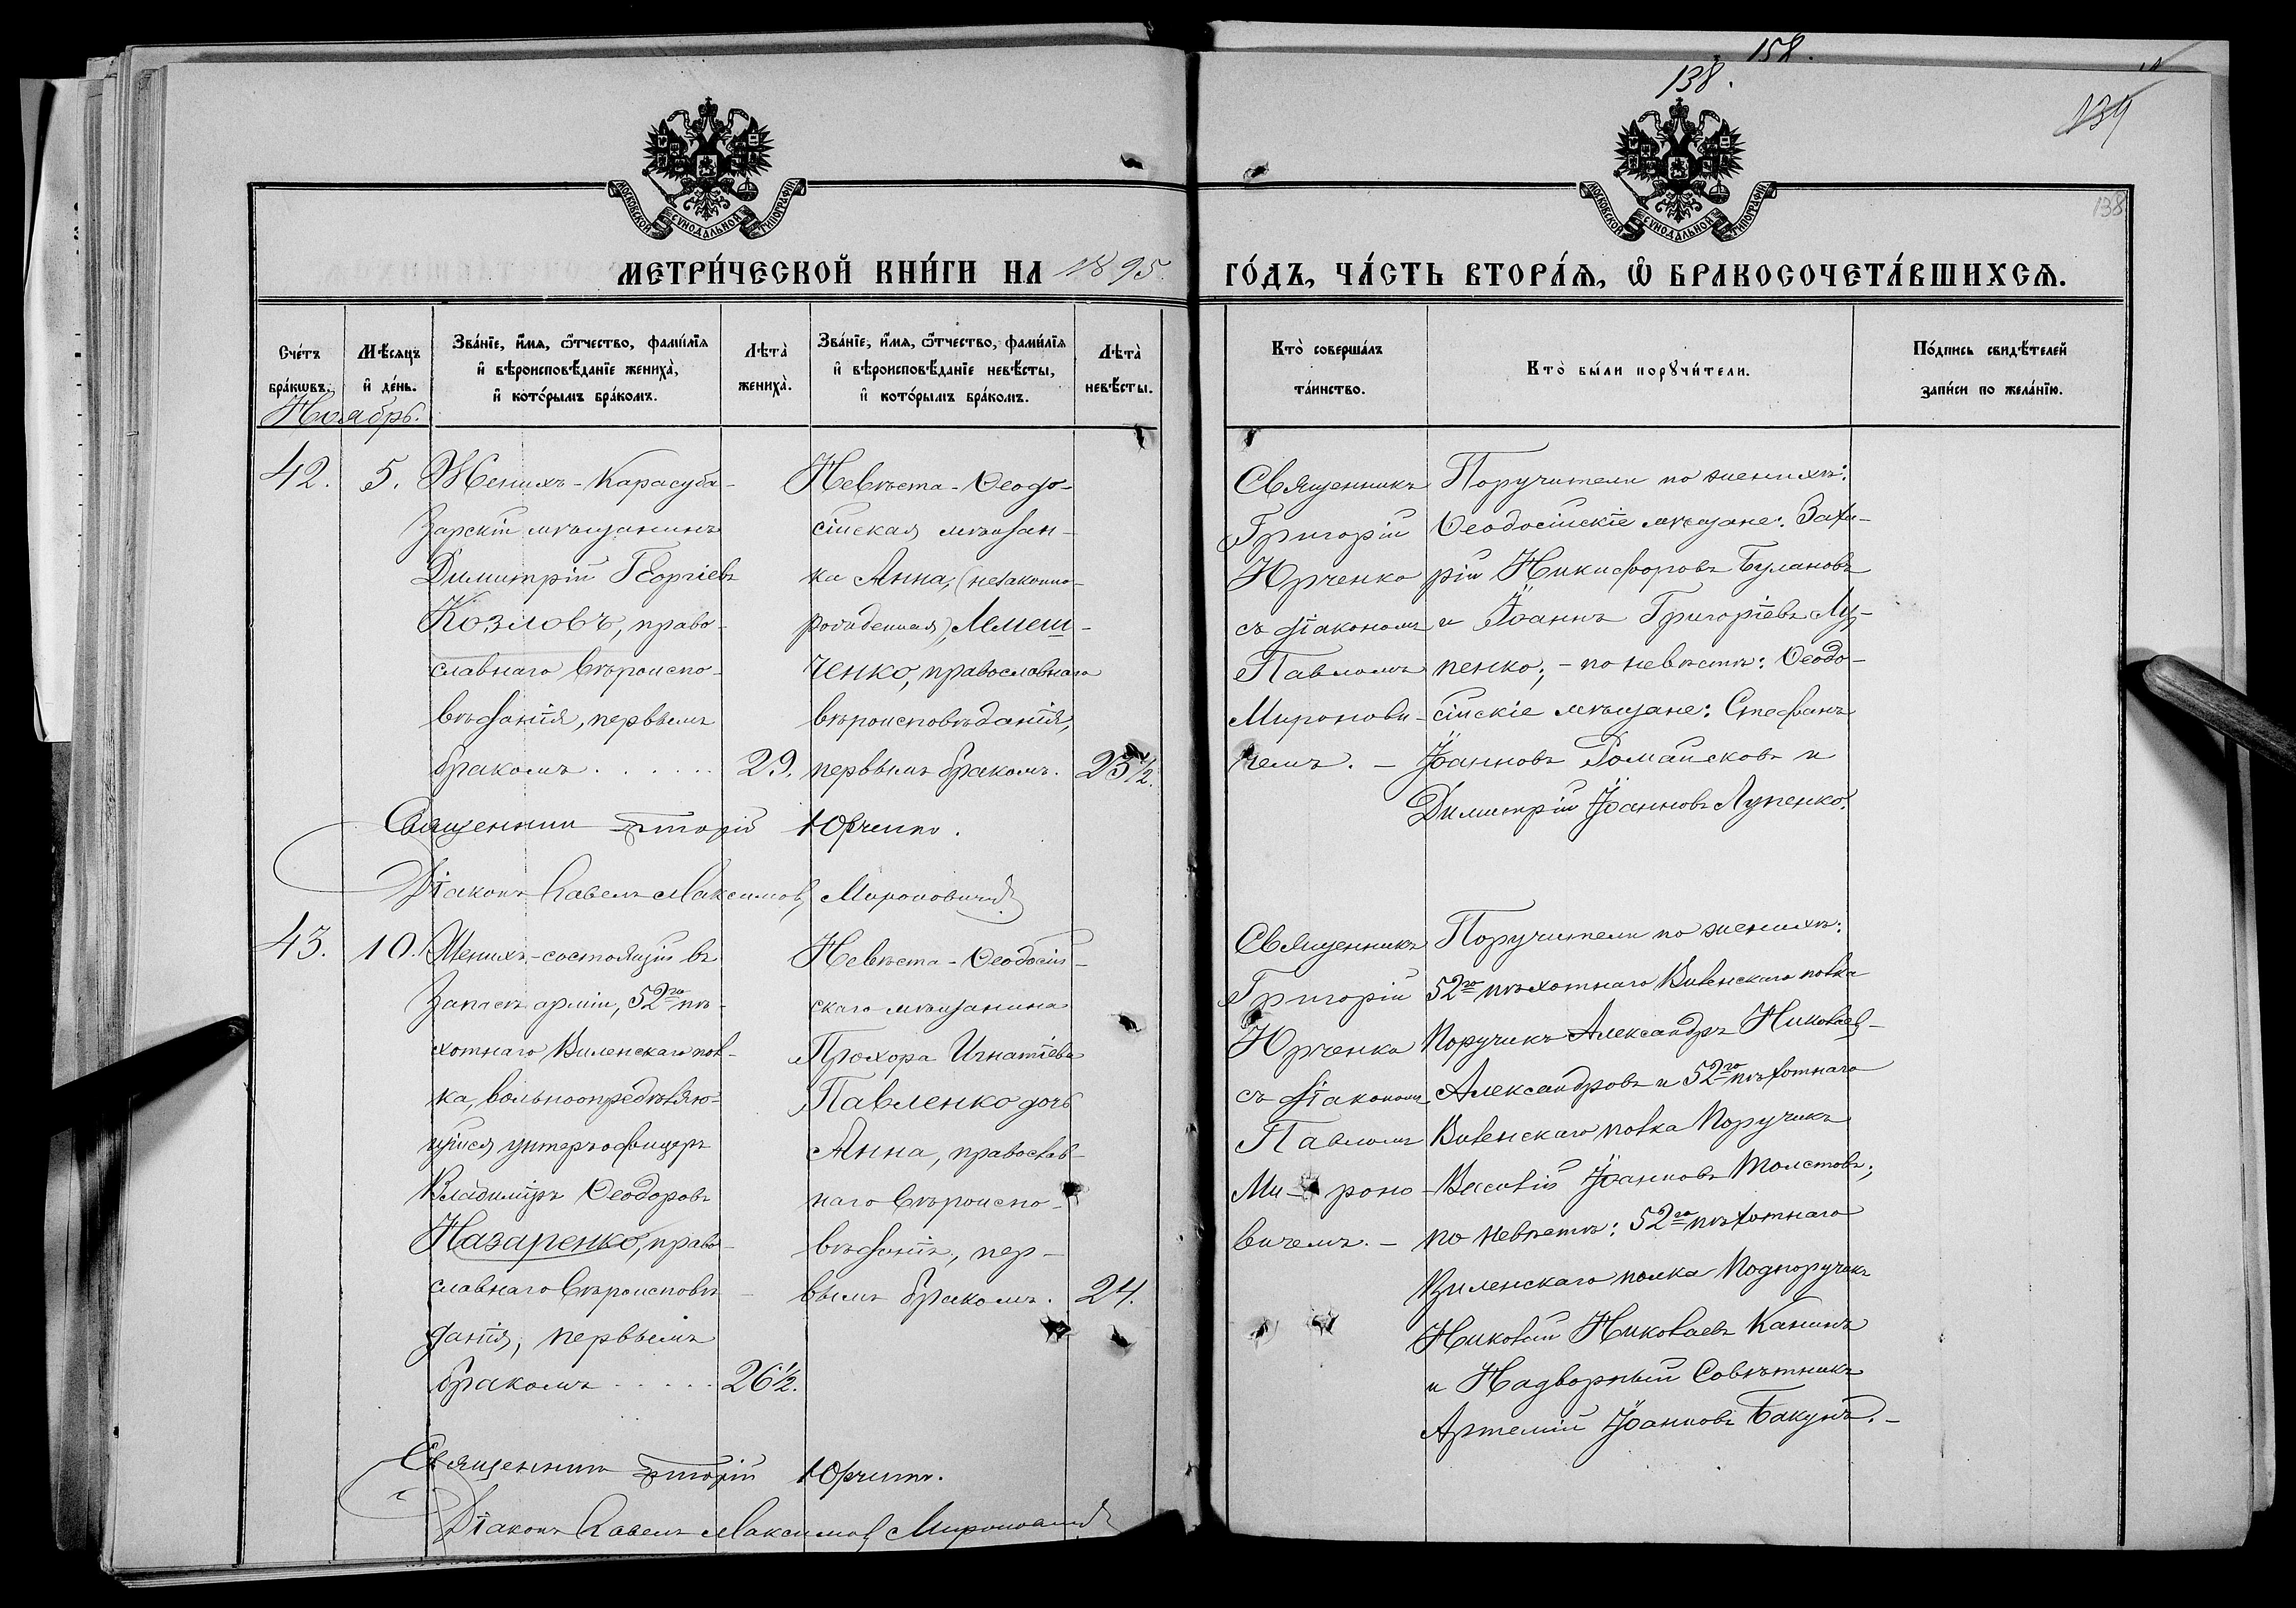 158.
138.
139
138
МОСКОВСКОЙ СѴНОДАЛЬНОЙ ТИПОГРАФІИ
МОСКОВСКОЙ СѴНОДАЛЬНОЙ ТИПОГРАФІИ
МЕТРИ́ЧЕСКОЙ КНИ́ГИ НА 1895 ГО́ДЪ, ЧА́СТЬ ВТОРА́Ѧ, Ѽ БРАКОСОЧЕТА́ВШИХСѦ.
Сче́тъ
бра́кѡвъ.
Мѣ́сяцъ
и҆ де́нь.
Зва́нїе, и҆́мѧ, ѻ҆́тчество, фами́лїѧ
и҆ вѣроисповѣ́данїе жениха̀,
и҆ кото́рымъ бра́комъ.
Лѣта̀
жениха̀.
Зва́нїе, и҆́мѧ, ѻ҆́тчество, фами́лїѧ
и҆ вѣроисповѣ́данїе невѣ́сты,
и҆ кото́рымъ бра́комъ.
Лѣта̀
невѣ́сты.
Кто̀ соверша́лъ
та́инство.
Кто̀ бы́ли порꙋчи́тели.
По́дпись свидѣ́телей
за́писи по жела́нїю.
Ноябрь.
42.
5.
Женихъ - Карасуба-
зарскій мѣщанинъ
Димитрій Георгіевъ
Козловъ, право-
славнаго вѣроиспо-
вѣданія, первымъ
бракомъ . . . . . .
29.
Невѣста - Ѳеодо-
сійская мѣщан-
ка Анна, (незаконно-
рожденная) Лемеш-
ченко, православнаго
вѣроисповѣданія,
первымъ бракомъ.
23½.
Священникъ
Григорій
Юрченко
съ діакономъ
Павломъ
Миронови-
чемъ. -
Поручители по женихѣ:
Ѳеодосійскіе мѣщане: Заха-
рій Никифоровъ Булановъ
и Іоаннъ Григоріевъ Лу-
пенко; - по невѣстѣ: Ѳеодо-
сійскіе мѣщане: Стефанъ
Іоанновъ Романсковъ и
Димитрій Іоанновъ Лупенко.
Священникъ Григорій Юрченко.
Діаконъ Павелъ Максимовъ Мироновичъ
43.
10.
Женихъ - состоящій въ
запасѣ арміи, 52го пѣ-
хотнаго Виленскаго пол-
ка, вольноопредѣляю-
щійся унтеръ офицеръ
Владиміръ Ѳеодоровъ
Назаренко, право-
славнаго вѣроисповѣ-
данія, первымъ
бракомъ . . . . .
26½.
Невѣста - Ѳеодосій-
скаго мѣщанина
Прохора Игнатіева
Павленко дочь
Анна, православ-
наго вѣроиспо-
вѣданія, пер-
вымъ бракомъ.
24.
Священникъ
Григорій
Юрченко
съ діакономъ
Павломъ
Ми- роно-
вичемъ. -
Поручители по женихѣ:
52го пѣхотнаго Виленскаго полка
Поручикъ Александръ Николаев-
Александровъ и 52го пѣхотнаго
Виленскаго полка Поручикъ
Василій Іоанновъ Толстовъ;
по невѣстѣ: 52го пѣхотнаго
Виленскаго полка Подпоручикъ
Николай Николаевъ Канинъ
и Надворный Совѣтникъ
Артемій Іоанновъ Бакунъ. -
Священникъ Григорій Юрченко.
Діаконъ Павелъ Максимовъ Мироновичъ